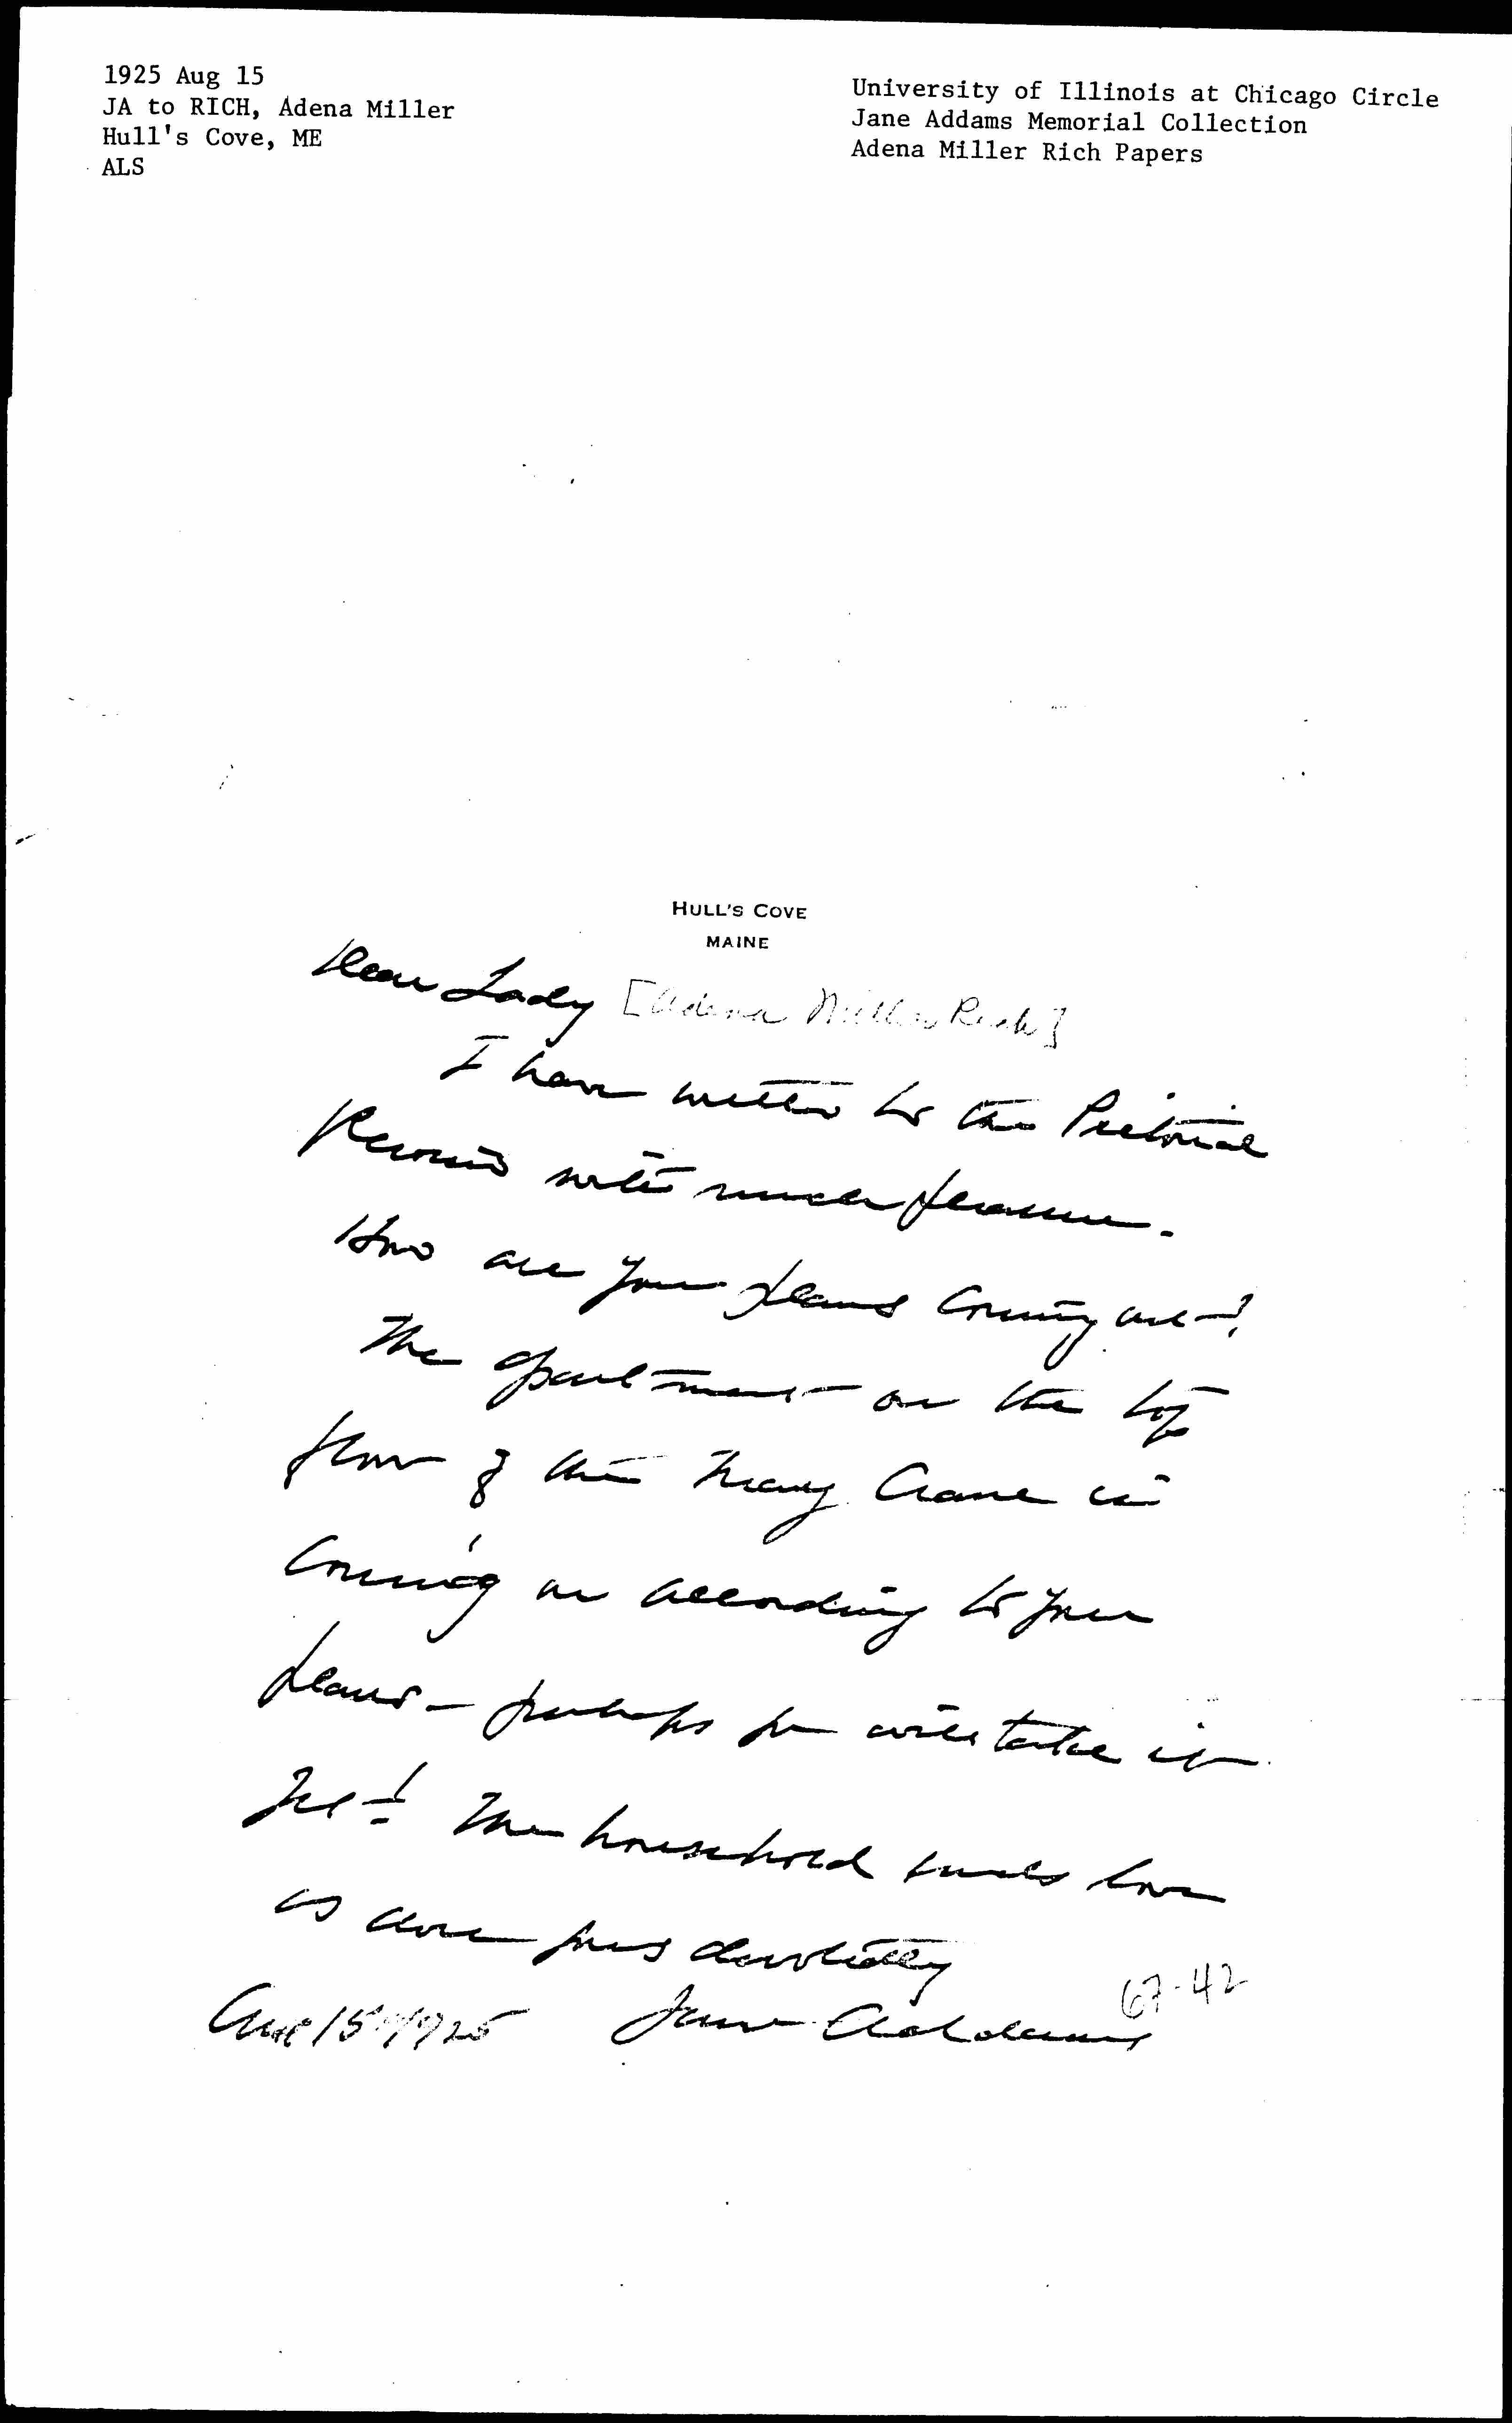 1925 Aug 15
JA to RICH, Adena Miller
Hull's Cove, ME
ALS
University of Illinois at Chicago Circle
Jane Addams Memorial Collection
Adena Miller Rich Papers
HULL'S COVE
MAINE
Dear Lady [Adena Miller Rich]
I have written to the Pictorial
Review with much pleasure.
How are your plans coming out?
The apartment on the top
floor of the Mary Crane is
coming on according to your
plans – perhaps you will take it
yet! The household sends love
as does yours devotedly
Aug 15" 1925 Jane Addams
67-42